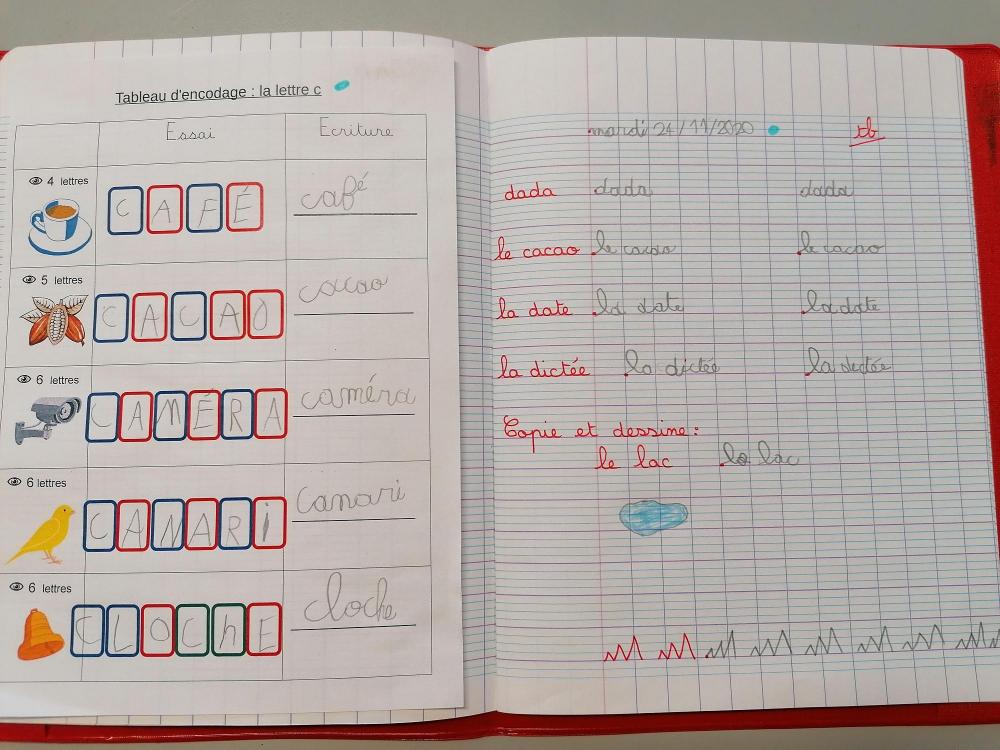 Tableau d'encodage : la lettre c
Essai Ecriture
4 lettres
CAFÉ café
5 lettres
CACAO cacao
6 lettres
CAMÉRA caméra
6 lettres
CANARi canari
6 lettres
CLOChE cloche
mardi 24/11/2020 tb
dada dada dada
le cacao le cacao le cacao
la date la date la date
la dictée la dictée la dictée
Copie et dessine :
le lac le lac